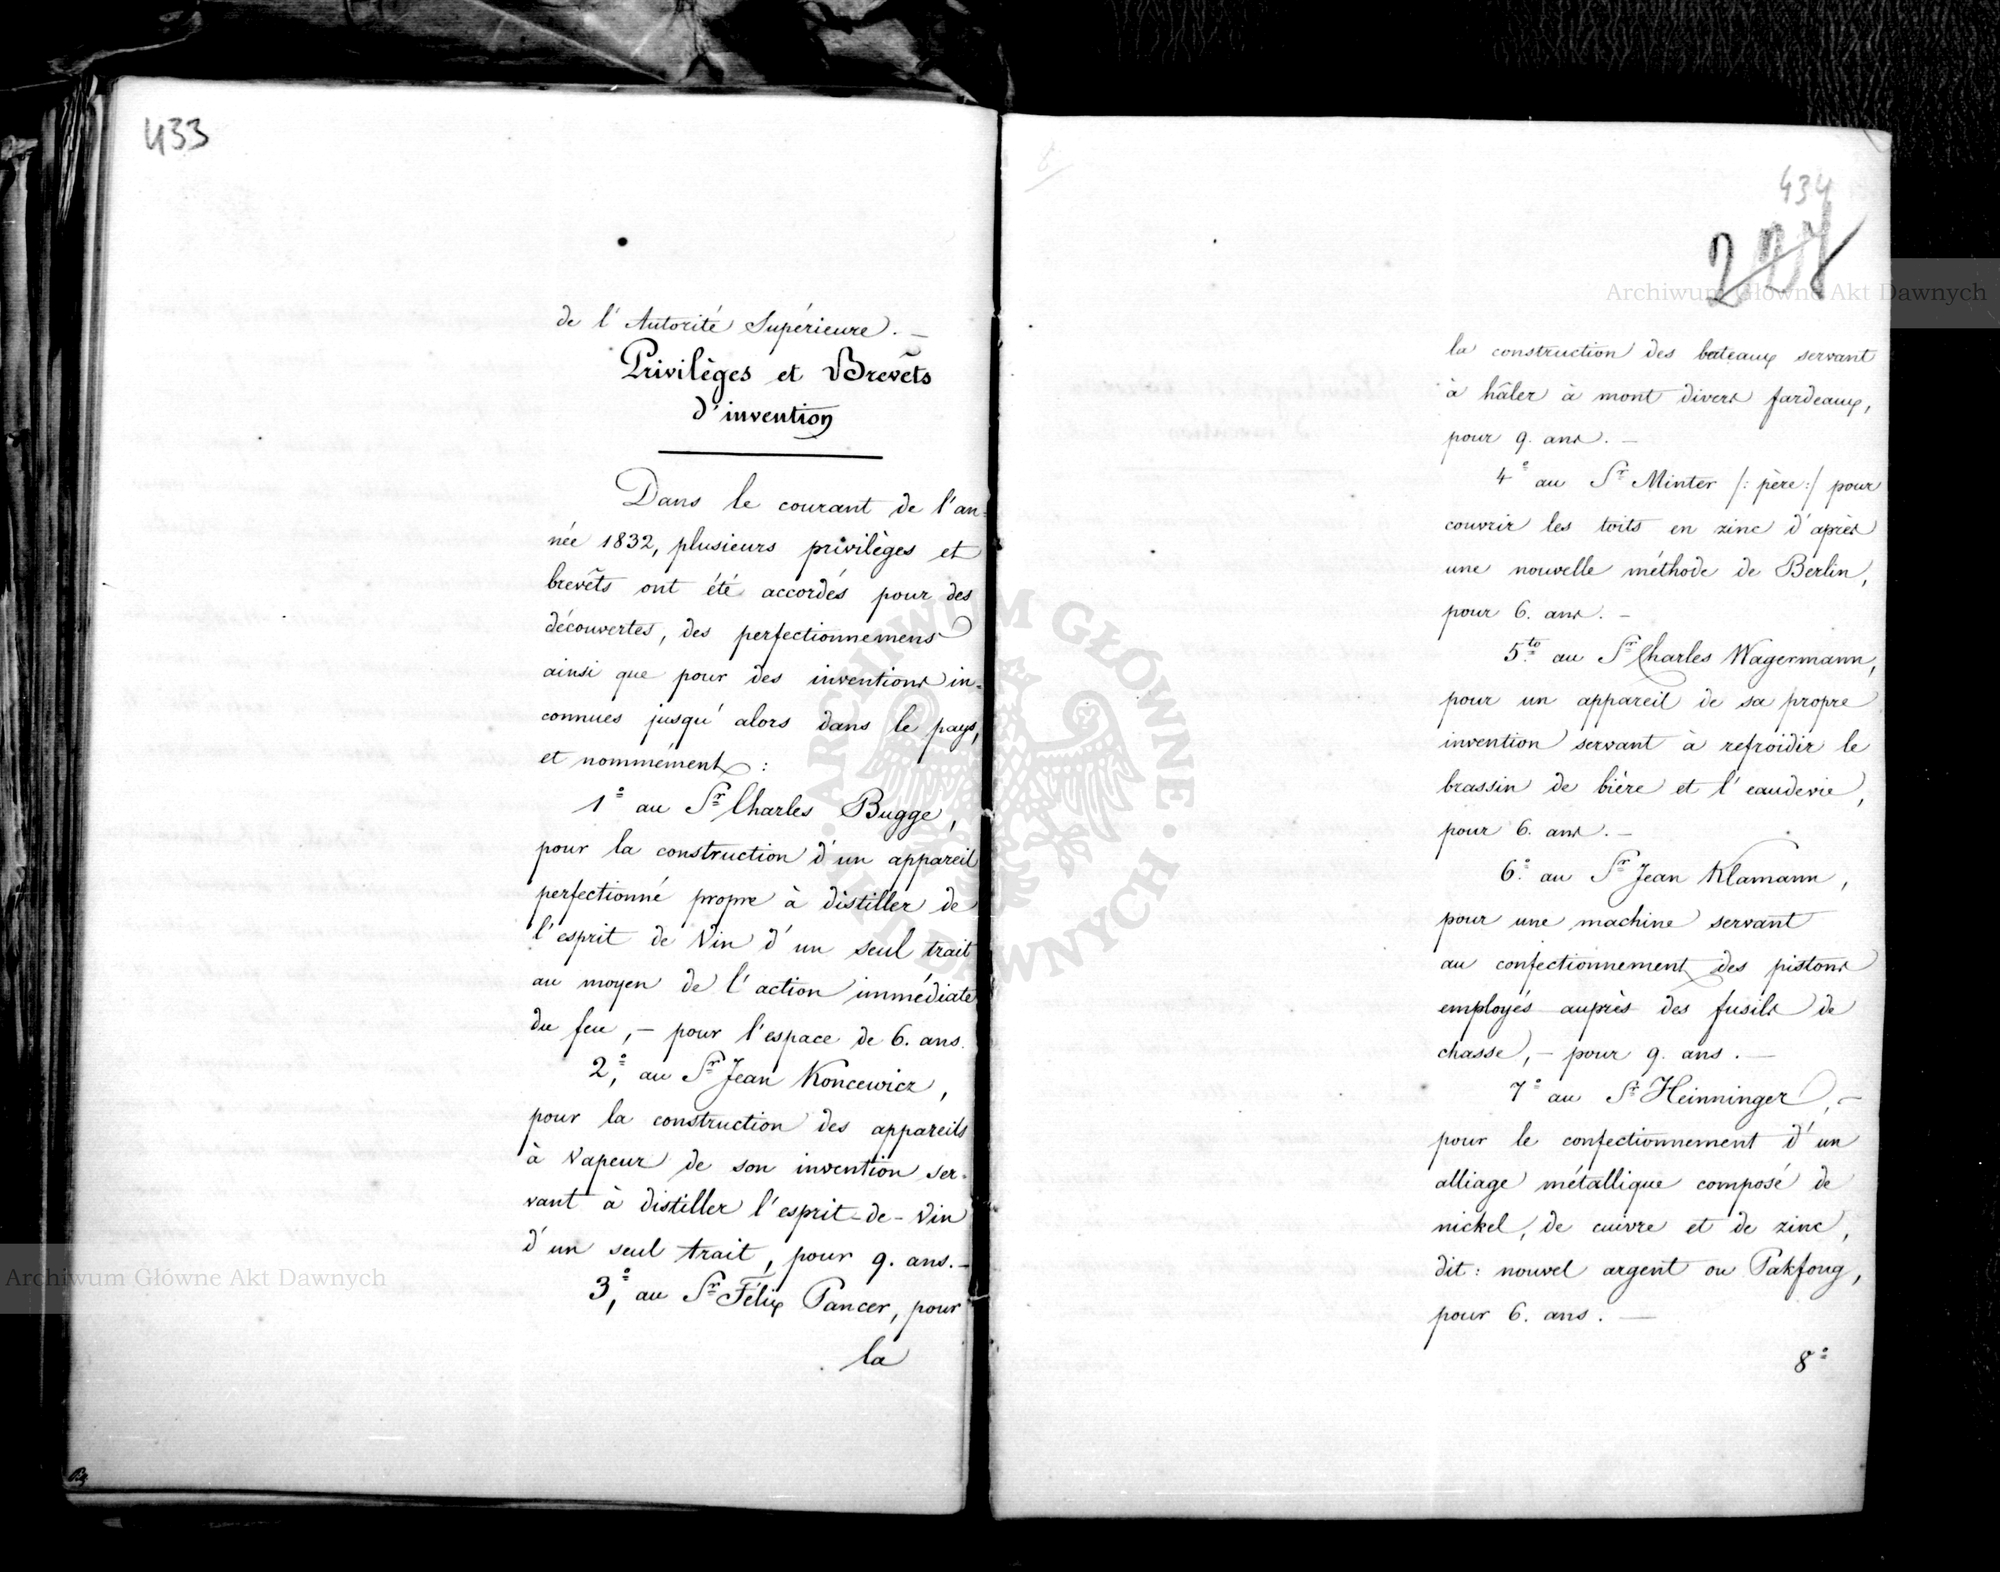 433
de l'Autorité Supérieure. —
Privilèges et Brevêts
d'invention
Dans le courant de l'an-
née 1832, plusieurs privilèges et
brevêts ont été accordés pour des
découvertes, des perfectionnemens
ainsi que pour des inventions in-
connues jusqu'alors dans le pays,
et nommément :
1° au Sr Charles Bugge,
pour la construction d'un appareil
perfectionné propre à distiller de
l'esprit de vin d'un seul trait
au moyen de l'action immédiate
du feu, — pour l'espace de 6. ans.
2°, au Sr Jean Koncewicz,
pour la construction des appareils
à vapeur de son invention ser-
vant à distiller l'esprit-de-vin
d'un seul trait, pour 9. ans. —
3°, au Sr Félix Pancer, pour
la
434
227
la construction des bateaux servant
à hâler à mont divers fardeaux,
pour 9. ans. —
4° au Sr Minter /: père :/ pour
couvrir les toits en zinc d'après
une nouvelle méthode de Berlin,
pour 6. ans. —
5to au Sr Charles Wagermann,
pour un appareil de sa propre
invention servant à refroidir le
brassin de bière et l'eaudevie,
pour 6. ans. —
6° au Sr Jean Klamann,
pour une machine servant
au confectionnement des pistons
employés auprès des fusils de
chasse, — pour 9. ans. —
7° au Sr Heinninger, —
pour le confectionnement d'un
alliage métallique composé de
nickel, de cuivre et de zinc,
dit : nouvel argent ou Pakfong,
pour 6. ans. —
8°
Archiwum Główne Akt Dawnych
Archiwum Główne Akt Dawnych
ARCHIWUM GŁÓWNE AKT DAWNYCH